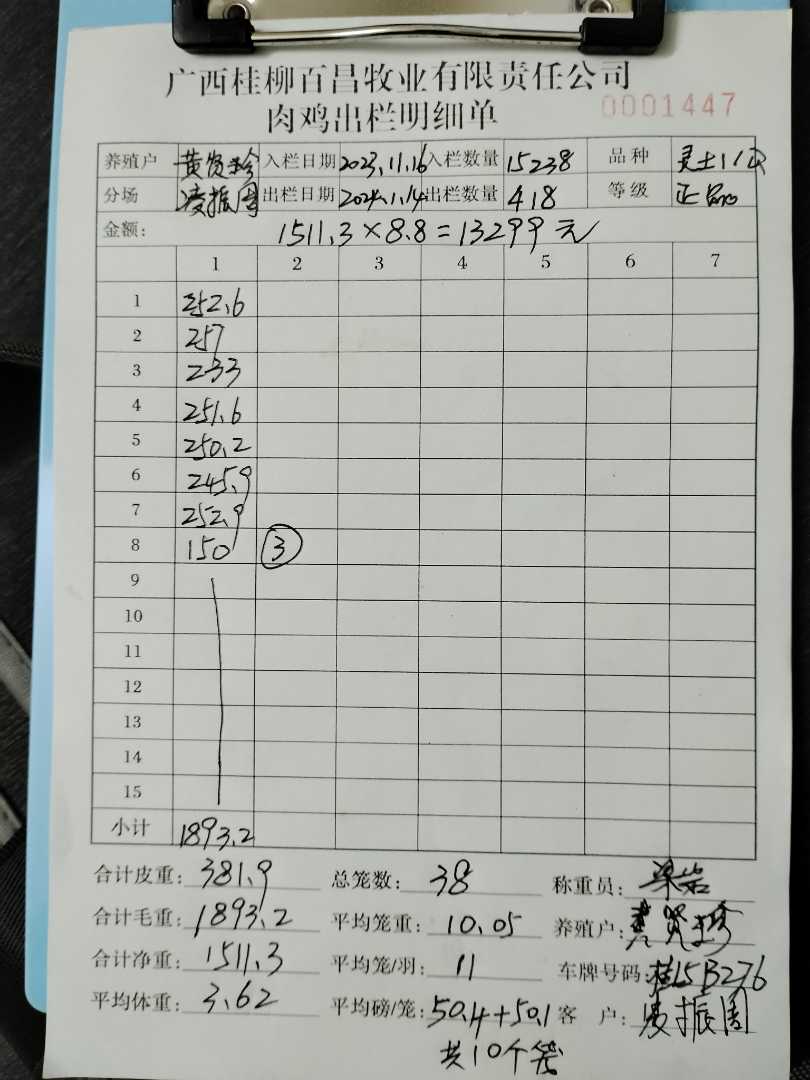 广西桂柳百昌牧业有限责任公司
肉鸡出栏明细单
0001447
养殖户 黄贤珍 入栏日期 2023.11.16 入栏数量 15238 品种 灵土1
分场 凌振周 出栏日期 2024.1.14 出栏数量 418 等级 正品
金额: 1511.3×8.8=13299元
1 2 3 4 5 6 7
1 252.6
2 257
3 233
4 251.6
5 250.2
6 245.9
7 252.9
8 150 ③
9
10
11
12
13
14
15
小计 1893.2
合计皮重: 381.9 总笼数: 38 称重员:
合计毛重: 1893.2 平均笼重: 10.05 养殖户: 黄贤珍
合计净重: 1511.3 平均笼/羽: 11 车牌号码: 桂L5B276
平均体重: 3.62 平均磅/笼: 50.4+50.1 客 户: 凌振周
共10个笼